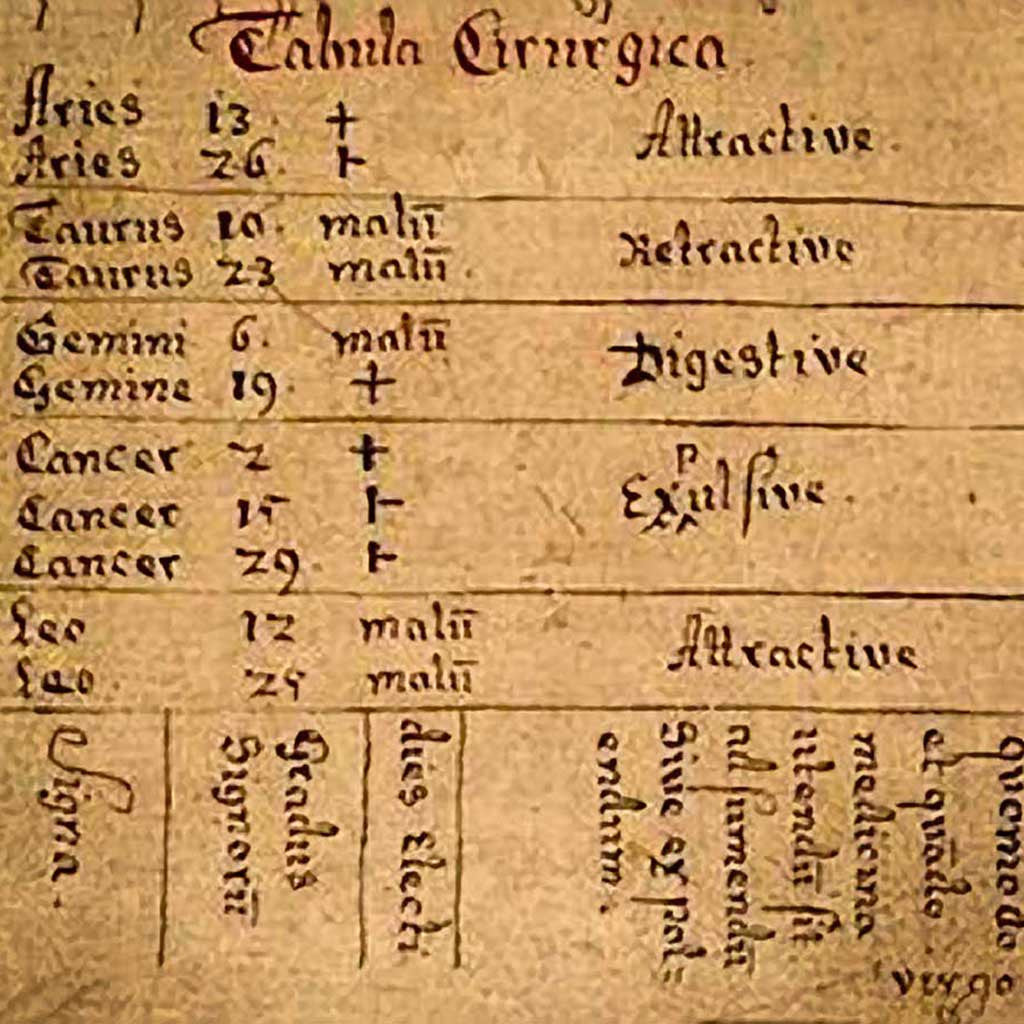 Tabula Cirurgica
Aries 13. + Attractive.
Aries 26. +
Taurus 10. malū Retractive
Taurus 23 malū.
Gemini 6. malū Digestive
Gemine 19. +
Cancer 2 + Expulsive.
Cancer 15 +
Cancer 29. +
Leo 12 malū Attractive
Leo. 25 malū
Signa.
Gradus
Signorū
dies Electi
Quomodo
et quādo.
medicina
utendū sit
ad sumendū
Sive expol=
endum.
virgo